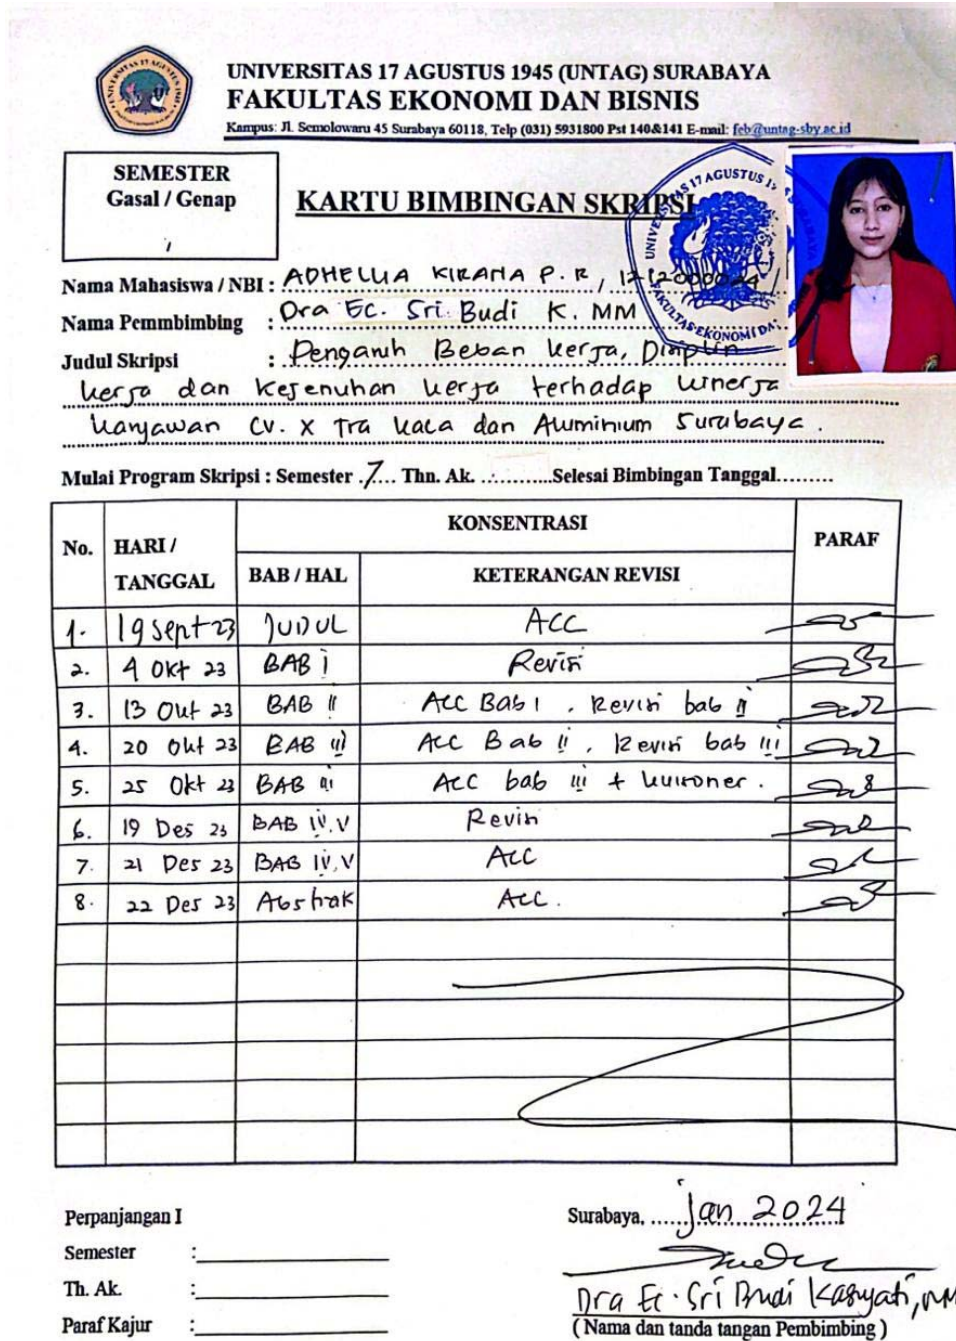 UNIVERSITAS 17 AGUSTUS 1945 (UNTAG) SURABAYA
FAKULTAS EKONOMI DAN BISNIS
Kampus: Jl. Semolowaru 45 Surabaya 60118, Telp (031) 5931800 Pst 140&141 E-mail: feb@untag-sby.ac.id
SEMESTER
Gasal / Genap
KARTU BIMBINGAN SKRIPSI
Nama Mahasiswa / NBI : ADHELLIA KIRANA P. R, 1212000024
Nama Pemmbimbing : Dra Ec. Sri Budi K. MM
Judul Skripsi : Pengaruh Beban Kerja, Disiplin
Kerja dan Kejenuhan Kerja terhadap Kinerja
Karyawan CV. X Tra Kaca dan Aluminium Surabaya.
Mulai Program Skripsi : Semester .7... Thn. Ak. ............Selesai Bimbingan Tanggal.........
No. HARI / TANGGAL KONSENTRASI PARAF
BAB / HAL KETERANGAN REVISI
1. 19 Sept 23 JUDUL ACC
2. 4 Okt 23 BAB I Revisi
3. 13 Okt 23 BAB II ACC Bab I, Revisi bab II
4. 20 Okt 23 BAB III ACC Bab II, Revisi bab III
5. 25 Okt 23 BAB III ACC bab III + kuisoner.
6. 19 Des 23 BAB IV, V Revisi
7. 21 Des 23 BAB IV, V ACC
8. 22 Des 23 Abstrak ACC.
Perpanjangan I
Semester :
Th. Ak. :
Paraf Kajur :
Surabaya, ..... Jan 2024
Dra Ec. Sri Budi Kasiyati, MM
( Nama dan tanda tangan Pembimbing )